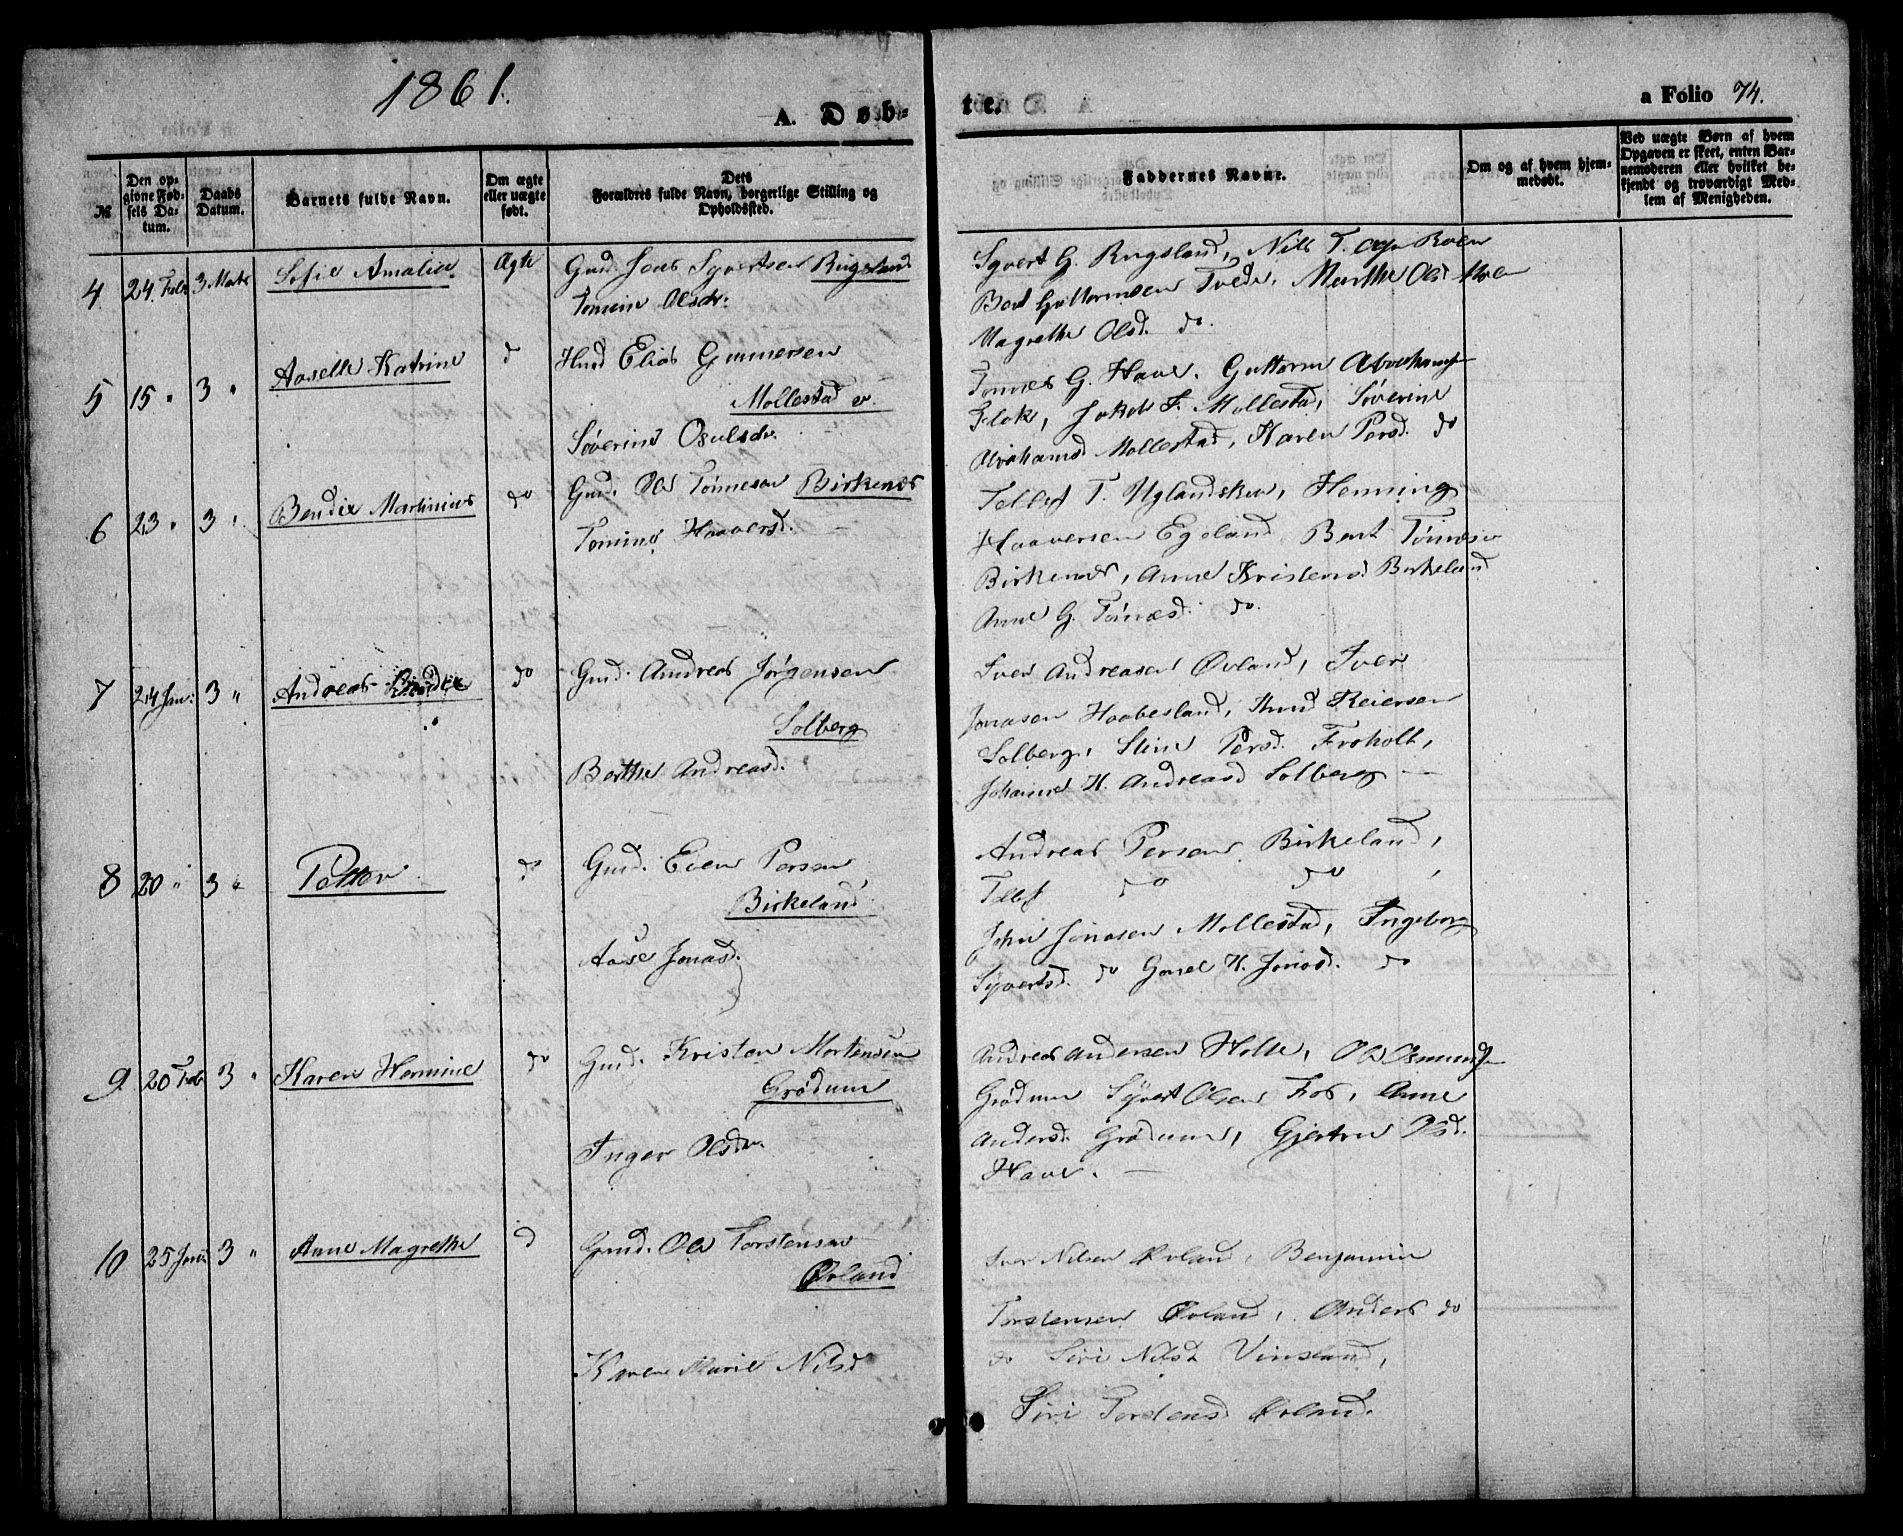 1861.
A. Døb-
te.
a Folio 74.
№
Den op-
givne Fød-
sels Da-
tum.
Daabs
Datum.
Barnets fulde Navn.
Om ægte
eller uægte
født.
Dets
Forældres fulde Navn, borgerlige Stilling og
Opholdssted.
Faddernes Navne.
Om og af hvem hjem-
medøbt.
Ved uægte Børn af hvem
Opgaven er skeet, enten Bar-
nemoderen eller hvilket be-
kjendt og troværdigt Med-
lem af Menigheden.
4 24 Feb 3 Marts Sofie Amalie Ægte Gmd Jens Syvertsen Rugsland
Tomine Olsdr.
Syvert G. Rugsland, Nils T.
Bent Guttormsen Tvede, Marthe Olsd Moen
Magrethe Olsd. do.
5 15 " 3 " Aaselle Katrine d Hmd Elias Gunnersen
Mollestad
Søverine Osulsdr.
Tomes G. Have. Guttorm Abrahams
Flak, Jakob F. Mollestad, Søverine
Abrahamsd Mollestad, Karen Persd. do
6 23 " 3 " Bendix Martinius do Gmd. Ole Tønnesen Birkenes
Tomine Haaversd.
Tellef T. Uglandskin, Henning
Haaversen Egeland Bent Tønnesen
Birkenes, Anne Kristensd Birkeland
Anne G. Tønnesd. do.
7 24 Jan: 3 " Andreas Bendix do Gmd. Andreas Jørgensen
Solberg
Berthe Andreasd.
Iver Andreasen Øvland, Iver
Jonasen Haabesland, Knud Reiersen
Solberg, Stine Persd. Froholt,
Johanne H. Andreasd Solberg
8 20 " 3 " Petter do Gmd. Even Persen
Birkeland
Aase Jonasd.
Andreas Persen Birkeland,
Tellef do do,
John Jonasen Mollestad, Ingeborg
Syvertsd. do Gonel H. Jonasd. do
9 20 Feb 3 " Karen Hermine do Gmd. Kristen Mortensen
Grødum
Inger Olsdr.
Andreas Andersen Holte, Ole Osmunds
Grødum Syvert Olsen Fos, Anne
Andersd. Grødum, Gjertru Olsd.
Have.
10 25 Jan: 3 " Anne Magrethe d Gmd. Ole Torstensen
Øvland
Karen Marie Nilsd
Iver Nilsen Øvland, Benjamin
Torstensen Øvland, Anders do
do Siri Nilsd Vinsland,
Siri Torstensd Øvland.